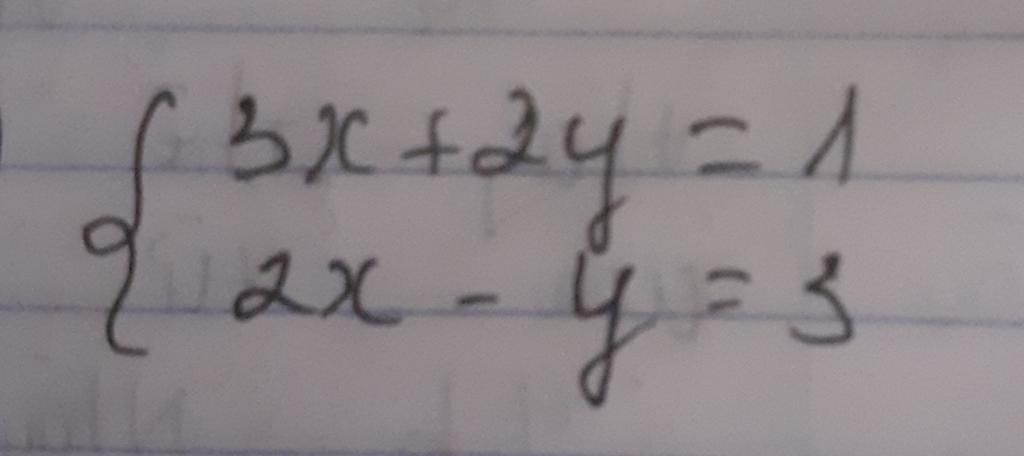 3x + 2y = 1
2x - y = 3